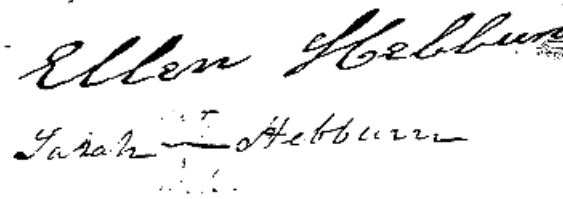 Ellen Hebbun
Sarah Hebburn